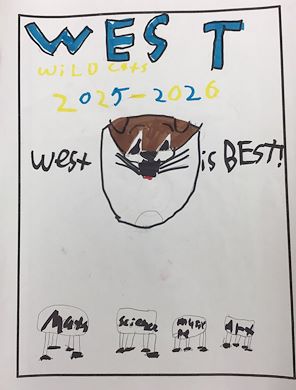 WEST
WiLD Cats
2025-2026
West is BEST!
Math Science Music Art